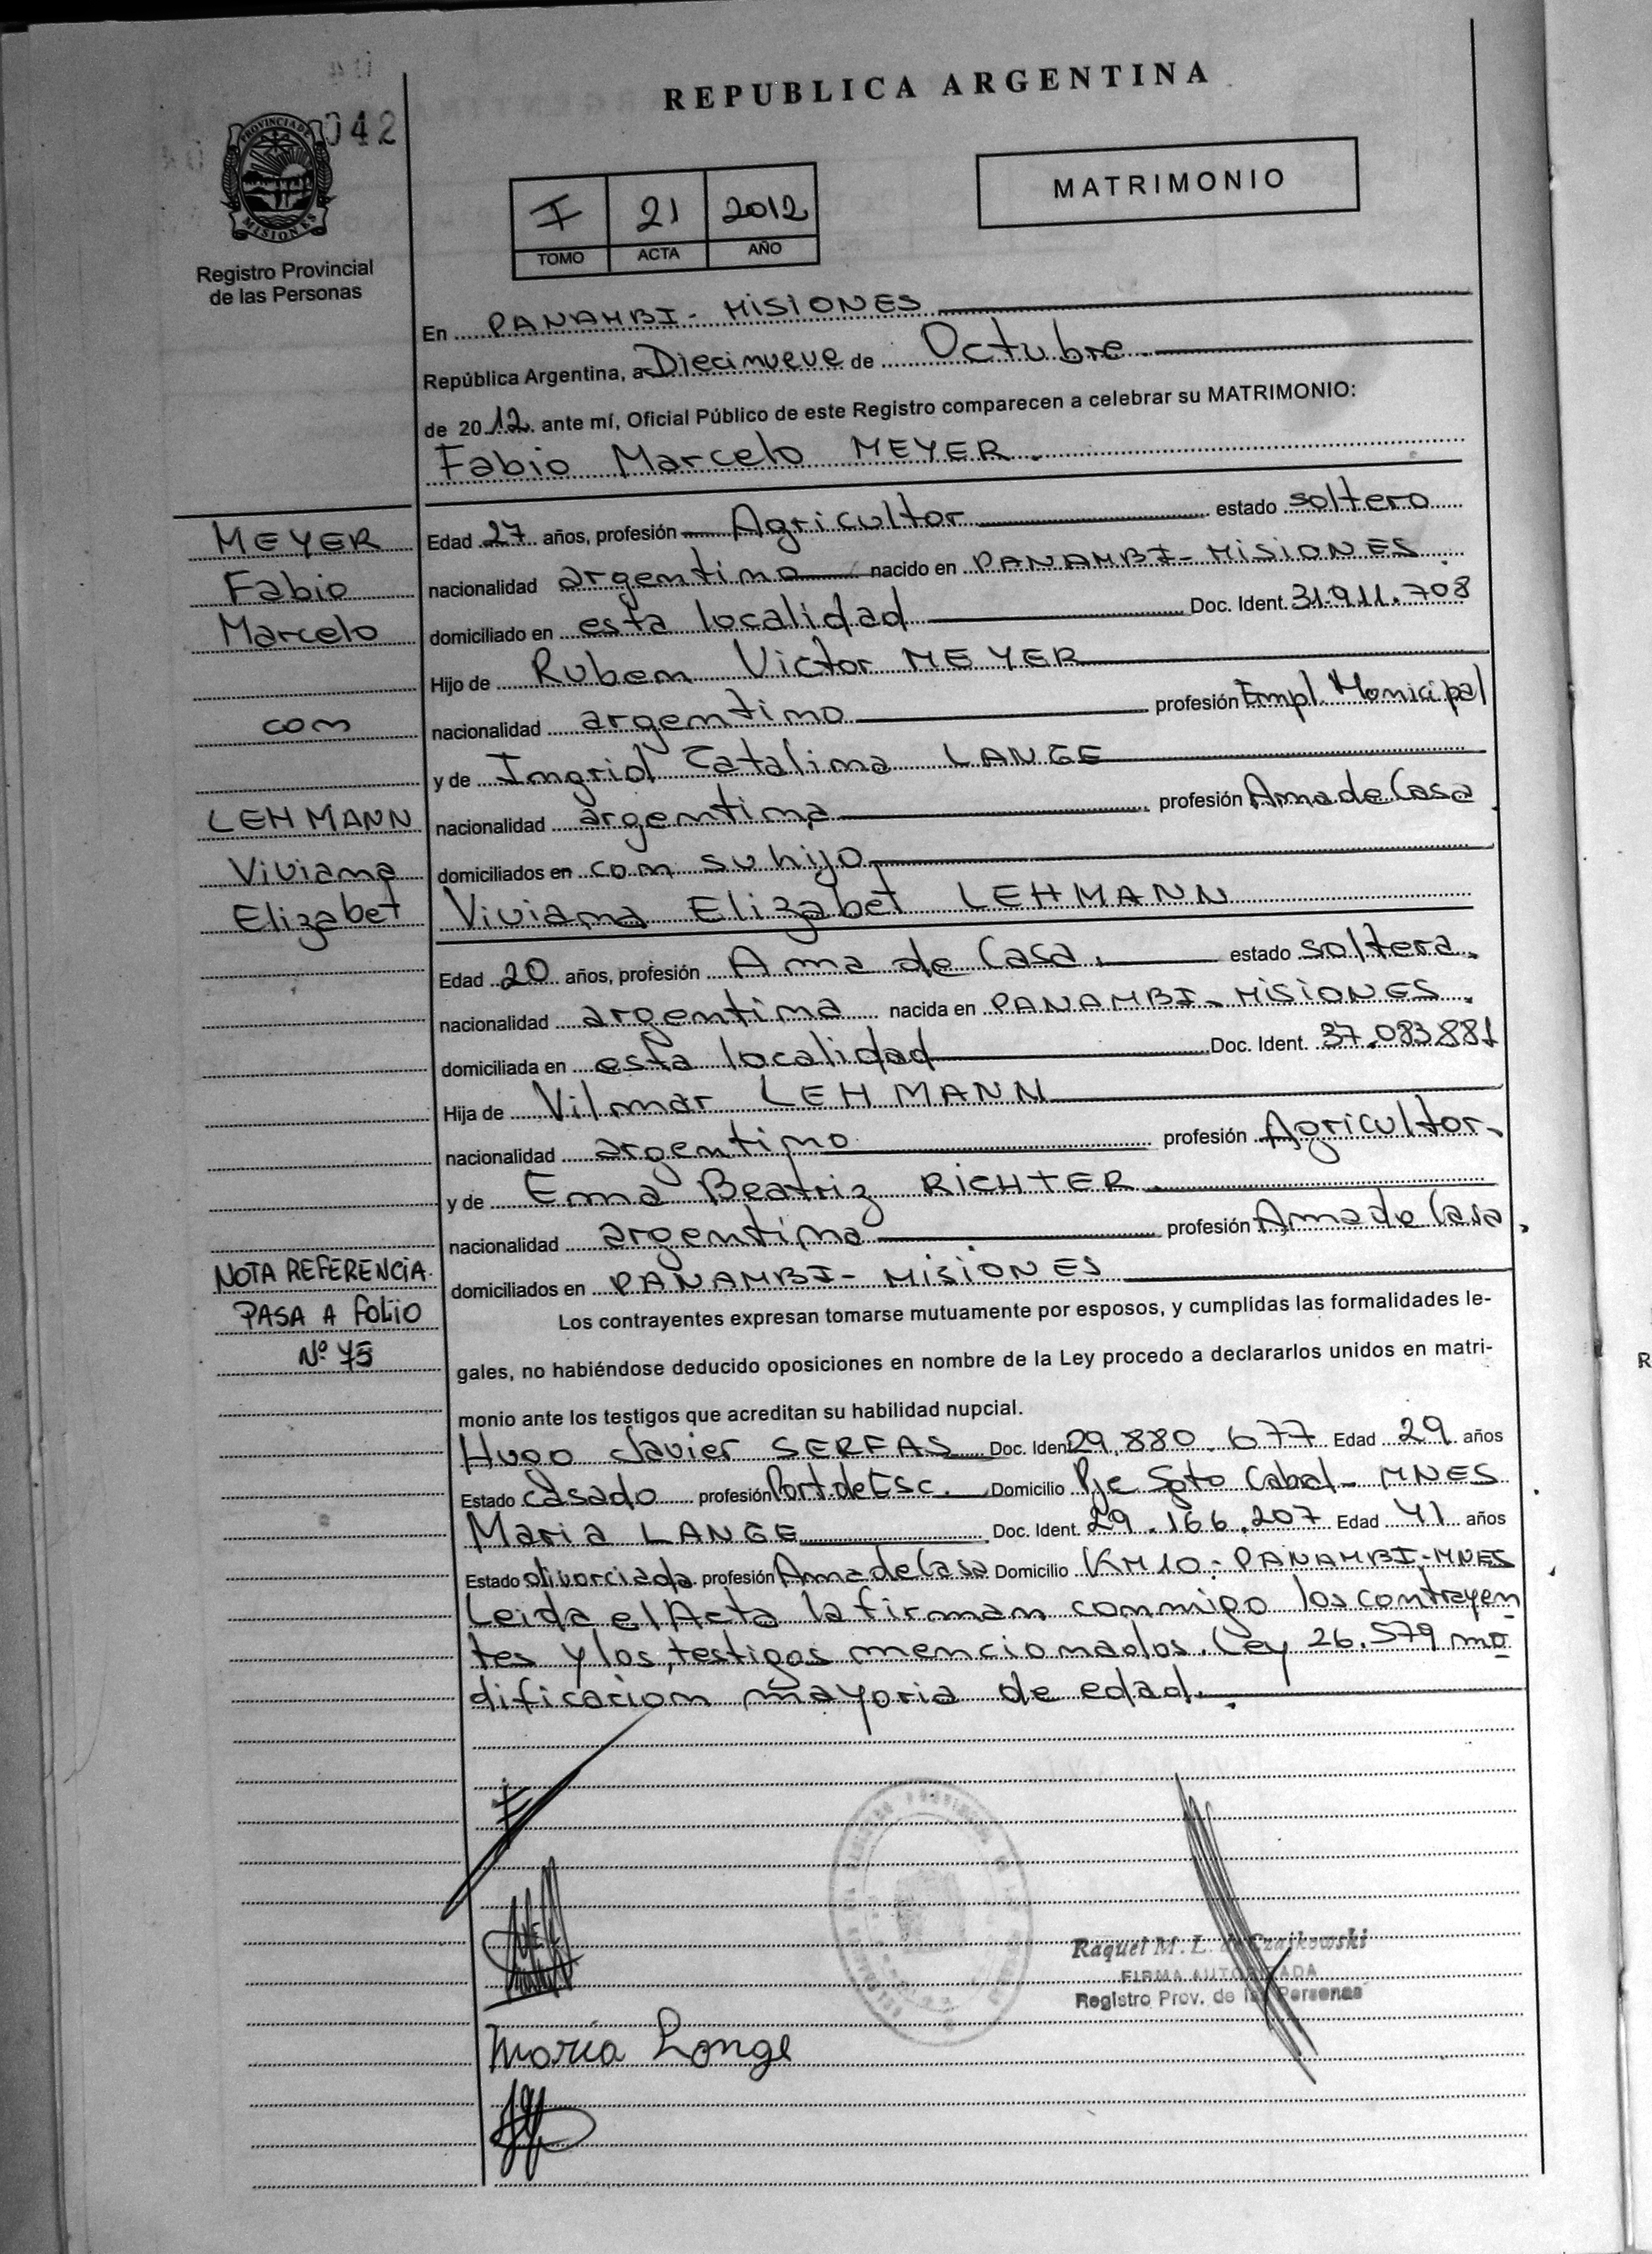 REPUBLICA ARGENTINA
042
PROVINCIA DE
MISIONES
Registro Provincial
de las Personas
I 21 2012
TOMO ACTA AÑO
MATRIMONIO
En PANAMBI - MISIONES
República Argentina, a Diecinueve de Octubre
de 2012 ante mí, Oficial Público de este Registro comparecen a celebrar su MATRIMONIO:
Fabio Marcelo MEYER
MEYER
Fabio
Marcelo
con
LEHMANN
Viviana
Elizabet
Edad 27 años, profesión Agricultor estado soltero
nacionalidad argentino nacido en PANAMBI - MISIONES
domiciliado en esta localidad Doc. Ident. 31.911.708
Hijo de Ruben Victor MEYER
nacionalidad argentino profesión Empl. Municipal
y de Ingrid Catalina LANGE
nacionalidad argentina profesión Ama de Casa
domiciliados en con su hijo
Viviana Elizabet LEHMANN
Edad 20 años, profesión Ama de Casa. estado soltera.
nacionalidad argentina nacida en PANAMBI - MISIONES.
domiciliada en esta localidad Doc. Ident. 37.083.881
Hija de Vilmar LEHMANN
nacionalidad argentino profesión Agricultor
y de Erna Beatriz RICHTER
nacionalidad argentina profesión Ama de Casa.
domiciliados en PANAMBI - MISIONES
NOTA REFERENCIA
PASA A FOLIO
Nº 75
Los contrayentes expresan tomarse mutuamente por esposos, y cumplidas las formalidades le-
gales, no habiéndose deducido oposiciones en nombre de la Ley procedo a declararlos unidos en matri-
monio ante los testigos que acreditan su habilidad nupcial.
Hugo Javier SERFAS Doc. Ident. 29.880.677 Edad 29 años
Estado casado profesión Port. de Esc. Domicilio Pje Sgto Cabral - MNES
Maria LANGE Doc. Ident. 29.166.207 Edad 41 años
Estado divorciada profesión Ama de Casa Domicilio KM 10 - PANAMBI - MNES
Leida el Acta la firman conmigo los contrayen
tes y los testigos mencionados. Ley 26.579 mo
dificacion mayoria de edad.
Raquel M. L. de Czajkowski
FIRMA AUTORIZADA
Registro Prov. de las Personas
María Lange